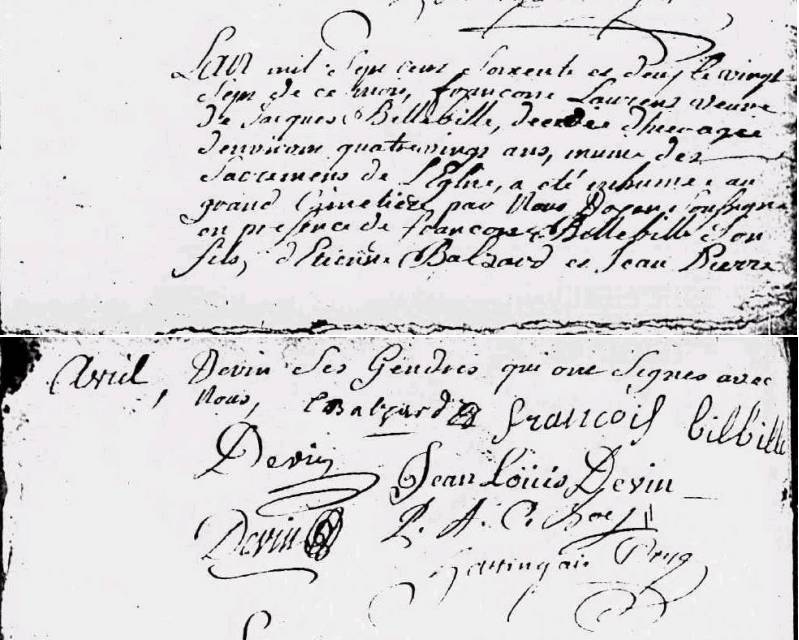 L'an mil Sept cent Soixente et deux le vingt
Sept de ce mois, françoise Laurens veuve
de Jacques Bellebille, decedée d'hier agée
d'environ quatrevingt ans, munie des
Sacremens de L'Eglise, a été inhumée au
grand Cimetiere par Nous Doyen Soussigné
en présence de françois Bellebille Son
fils, d'Etienne Balzard et Jean Pierre
Avril, Devin Ses Gendres qui ont Signés avec
Nous, Balzard françois bilbille
Devin Jean Loüis Devin
Devin P. A. C.